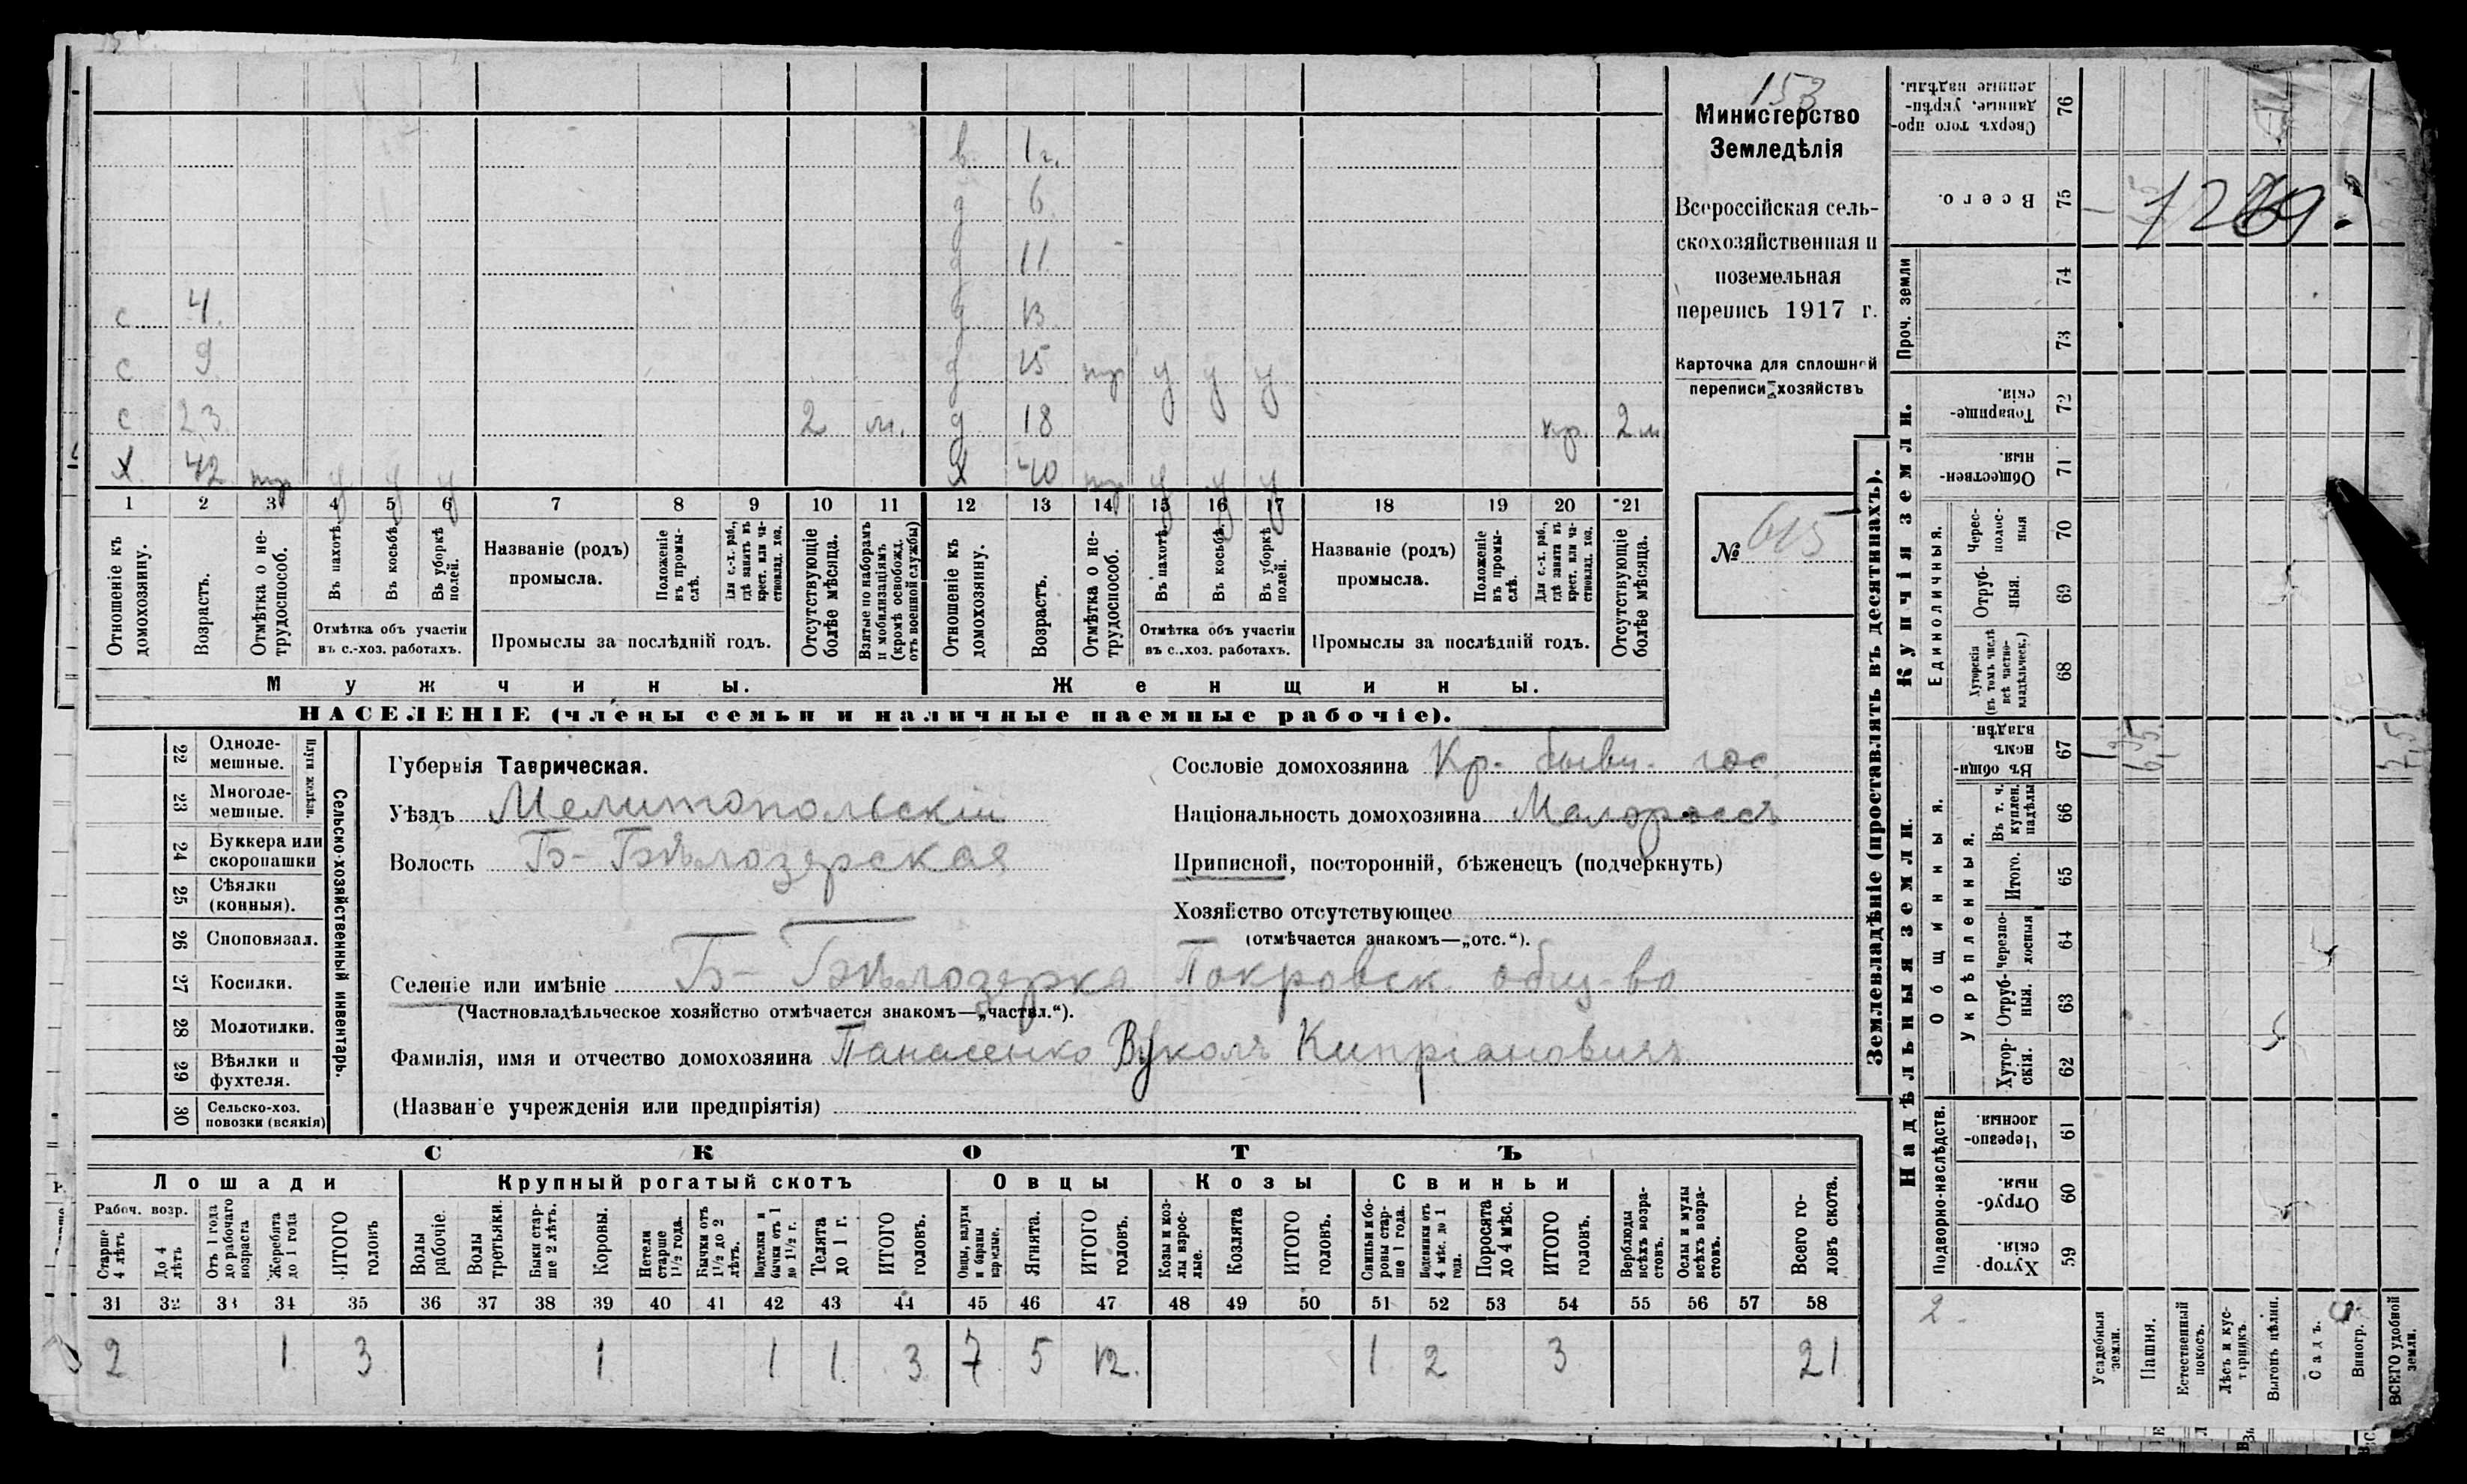 153
Министерство
Земледѣлія
Всероссійская сель-
скохозяйственная и
поземельная
перепись 1917 г.
Карточка для сплошной
переписи хозяйствъ
№ 615
в. 1 г.
д 6
д 11
с 4. д 13
с 9 д 15 тр у у у
с. 23 2 м. д 18 кр. 2 м
х. 42 тр у у у х 40 тр у у у
1 2 3 4 5 6 7 8 9 10 11 12 13 14 15 16 17 18 19 20 21
Отношеніе къ домохозяину.
Возрастъ.
Отмѣтка о не-трудоспособ.
Въ пахотѣ.
Въ косьбѣ.
Въ уборкѣ полей.
Отмѣтка объ участіи
въ с.-хоз. работахъ.
Названіе (родъ)
промысла.
Положеніе въ промы-слѣ.
Для с.-х. раб., гдѣ занятъ въ крест. или ча-стновлад. хоз.
Промыслы за послѣдній годъ.
Отсутствующіе болѣе мѣсяца.
Взятые по наборамъ и мобилизаціямъ (кромѣ освобожд. отъ военной службы)
Отношеніе къ домохозяину.
Возрастъ.
Отмѣтка о не-трудоспособ.
Въ пахотѣ.
Въ косьбѣ.
Въ уборкѣ полей.
Отмѣтка объ участіи
въ с.-хоз. работахъ.
Названіе (родъ)
промысла.
Положеніе въ промы-слѣ.
Для с.-х. раб., гдѣ занята въ крест. или ча-стновлад. хоз.
Промыслы за послѣдній годъ.
Отсутствующіе болѣе мѣсяца.
Мужчины. Женщины.
НАСЕЛЕНІЕ (члены семьи и наличные наемные рабочіе).
22 Одноле-мешные.
23 Многоле-мешные.
Плуги желѣзн.
24 Буккера или скоропашки
25 Сѣялки (конныя).
26 Сноповязал.
27 Косилки.
28 Молотилки.
29 Вѣялки и фухтеля.
30 Сельско-хоз. повозки (всякія)
Сельско-хозяйственный инвентарь.
Губернія Таврическая.
Уѣздъ Мелитопольскій
Волость Б-Бѣлозерская
Сословіе домохозяина Кр. бывш. гос.
Національность домохозяина Малороссъ
Приписной, посторонній, бѣженецъ (подчеркнуть)
Хозяйство отсутствующее
(отмѣчается знакомъ—„отс.“).
Селеніе или имѣніе Б-Бѣлозерка Покровск. общ-во
(Частновладѣльческое хозяйство отмѣчается знакомъ—„частвл.“).
Фамилія, имя и отчество домохозяина Панасенко Вуколъ Кипріановичъ
(Названіе учрежденія или предпріятія)
СКОТЪ
Лошади Крупный рогатый скотъ Овцы Козы Свиньи
Рабоч. возр.
Старше 4 лѣтъ
До 4 лѣтъ
Отъ 1 года до рабочаго возраста
Жеребята до 1 года
ИТОГО головъ
Волы рабочіе.
Волы третьяки.
Быки стар-ше 2 лѣтъ.
Коровы.
Нетели старше 1½ года.
Бычки отъ 1½ до 2 лѣтъ.
Подтелки и бычки отъ 1 до 1½ г.
Телята до 1 г.
ИТОГО головъ.
Овцы, валухи и бараны взрослые.
Ягнята.
ИТОГО головъ.
Козы и коз-лы взрос-лые.
Козлята
ИТОГО головъ.
Свиньи и бо-ровы стар-ше 1 года.
Подсвинки отъ 4 мѣс. до 1 года.
Поросята до 4 мѣс.
ИТОГО головъ.
Верблюды всѣхъ возра-стовъ.
Ослы и мулы всѣхъ возра-стовъ.
Всего го-ловъ скота.
31 32 33 34 35 36 37 38 39 40 41 42 43 44 45 46 47 48 49 50 51 52 53 54 55 56 57 58
2 1 3 1 1 1 3 7 5 12. 1 2 3 21
Землевладѣніе (проставлять въ десятинахъ).
Надѣльныя земли. Купчія земли. Проч. земли
Подворно-наслѣдств. Общинныя. Укрѣпленныя. Единоличныя.
59 Хутор-скія.
60 Отруб-ныя.
61 Черезпо-лосныя.
62 Хутор-скія.
63 Отруб-ныя.
64 Черезпо-лосныя
65 Итого.
66 Въ т. ч. куплен. надѣлы
67 Въ общин-номъ владѣн.
68 Хуторскія (въ томъ числѣ всѣ частно-владѣльческ.)
69 Отруб-ныя.
70 Черес-полос-ныя
71 Обществен-ныя.
72 Товарище-скія.
73
74
75 Всего.
76 Сверхъ того про-данные, укрѣп-ленные надѣлы.
1269.
1 6,5 7,5
2
Усадебныя земли.
Пашня.
Естественный покосъ.
Лѣсъ и кус-тарникъ.
Выгонъ цѣлин.
Садъ.
Виногр.
ВСЕГО удобной земли.